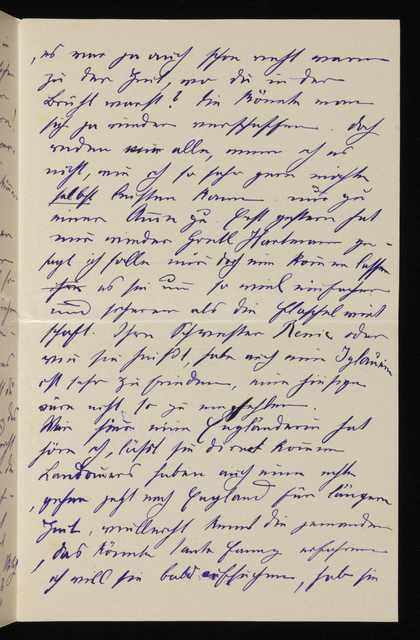 , es war ja auch schon recht warm
zu der Zeit, wo du in der
Brühl warst? Die könnte man
sich ja wieder verschaffen. Doch
reden wir alle, wenn ich es
nicht, wie ich so sehr gern möchte
selbst leisten kann mir zu
einer Amme zu. Erst gestern hat
mir wieder Gretl Hartmann ge-
sagt ich solle mir doch eine kommen lassen
es sei um so viel einfacher
und sicherer als die Flaschelwirt
schaft. Ihre Schwester Renie oder
wie sie heißt, habe auch eine Iglauerin
sehr zufrieden, eine hiesige
wäre nicht so zu empfehlen.
Wie eine Engländerin hat
höre ich, läßt sie direct kommen
Landauers haben auch eine
, gehen jetzt nach England für längere
Zeit, vielleicht kennt die jemanden
, das könnte Tante Fanny erfahren
ich will sie bald aufsuchen, hab sie